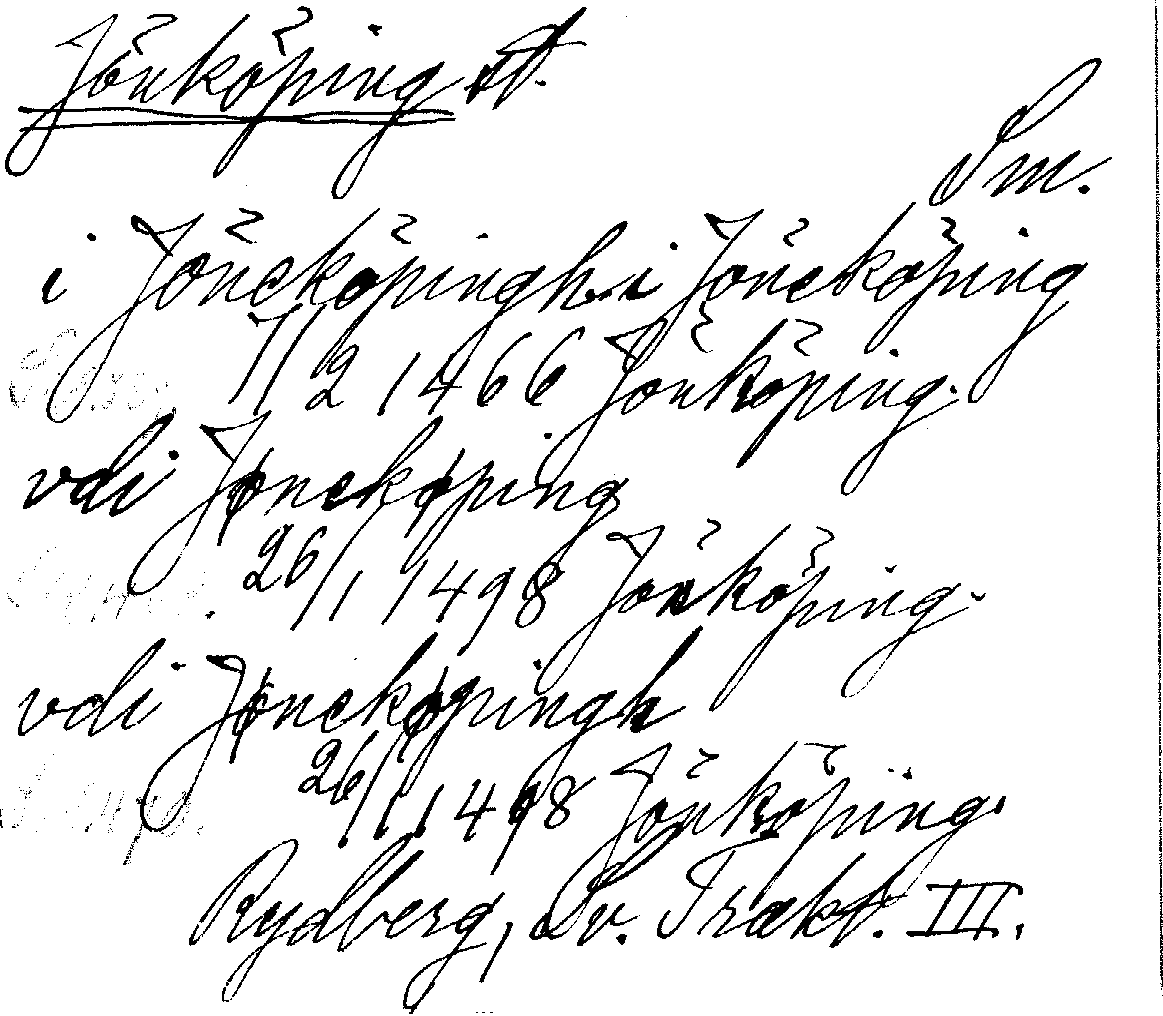 Jönköping st.
Sm.
i Jöneköpingh. i Jöneköping
7/2 1466 Jönköping.
vdi Jønekøping
26/1 1498 Jönköping.
vdi Jønekøpingh
26/1 1498 Jönköping.
Rydberg, Sv. Trakt. III.